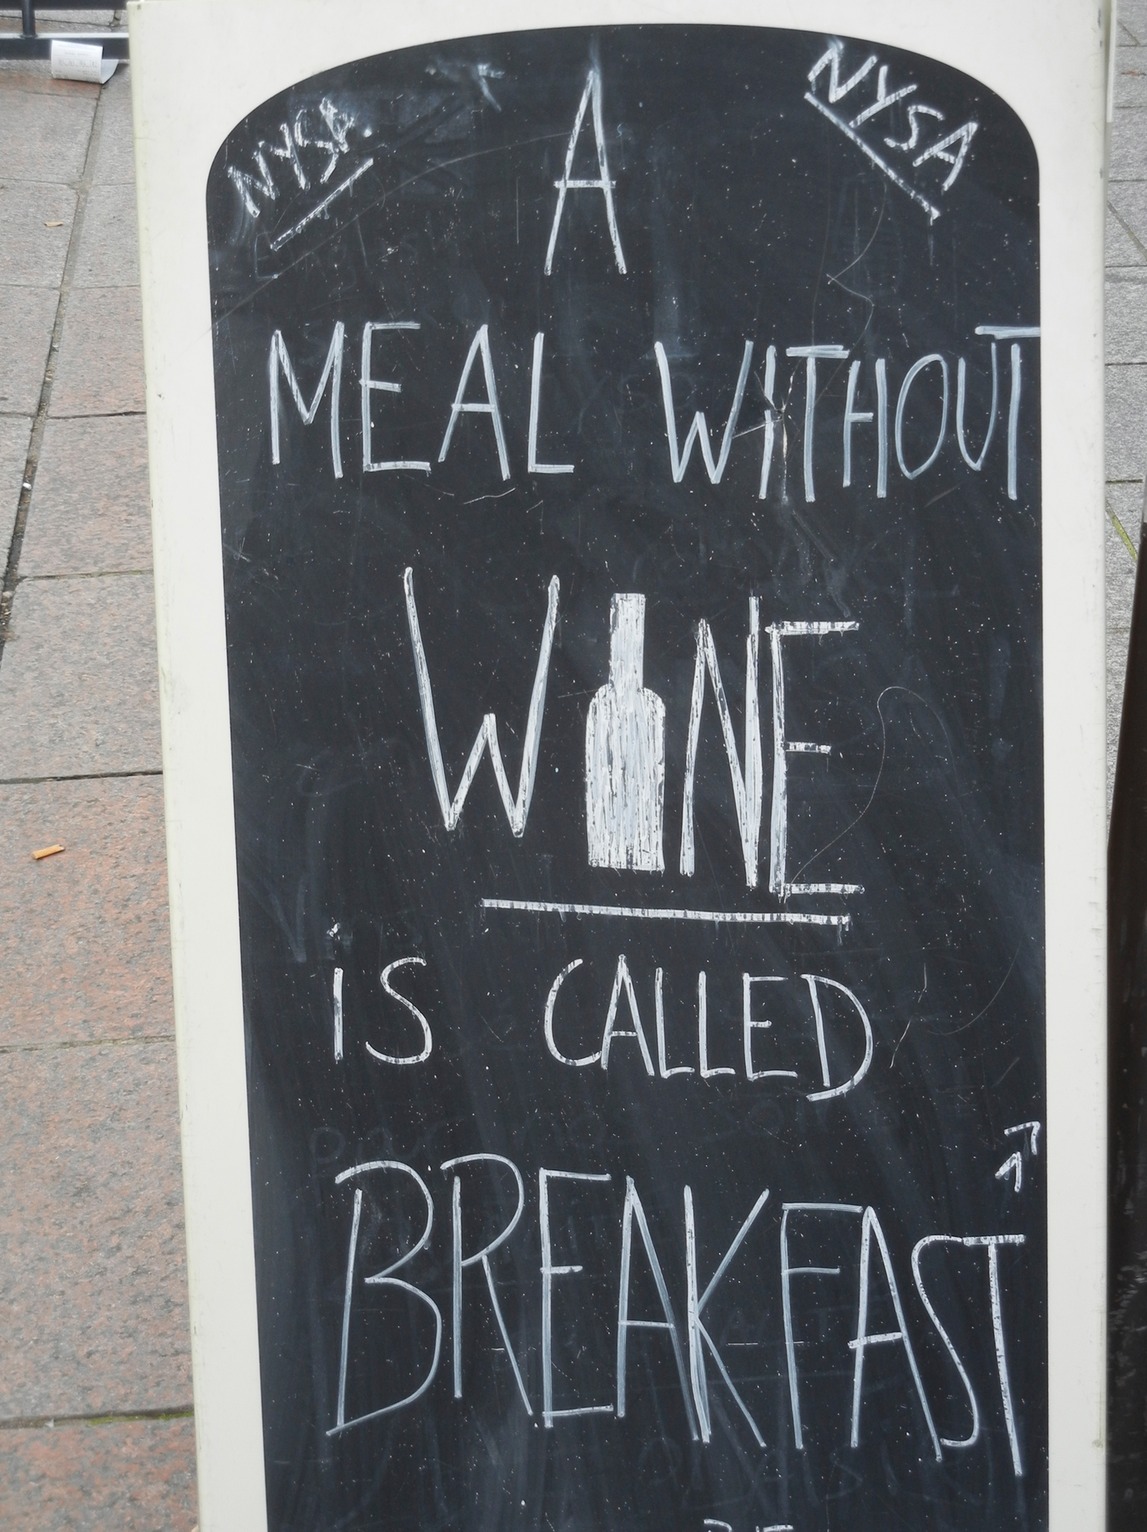 NYSA
NYSA
A
MEAL WITHOUT
WINE
iS CALLED
BREAKFAST